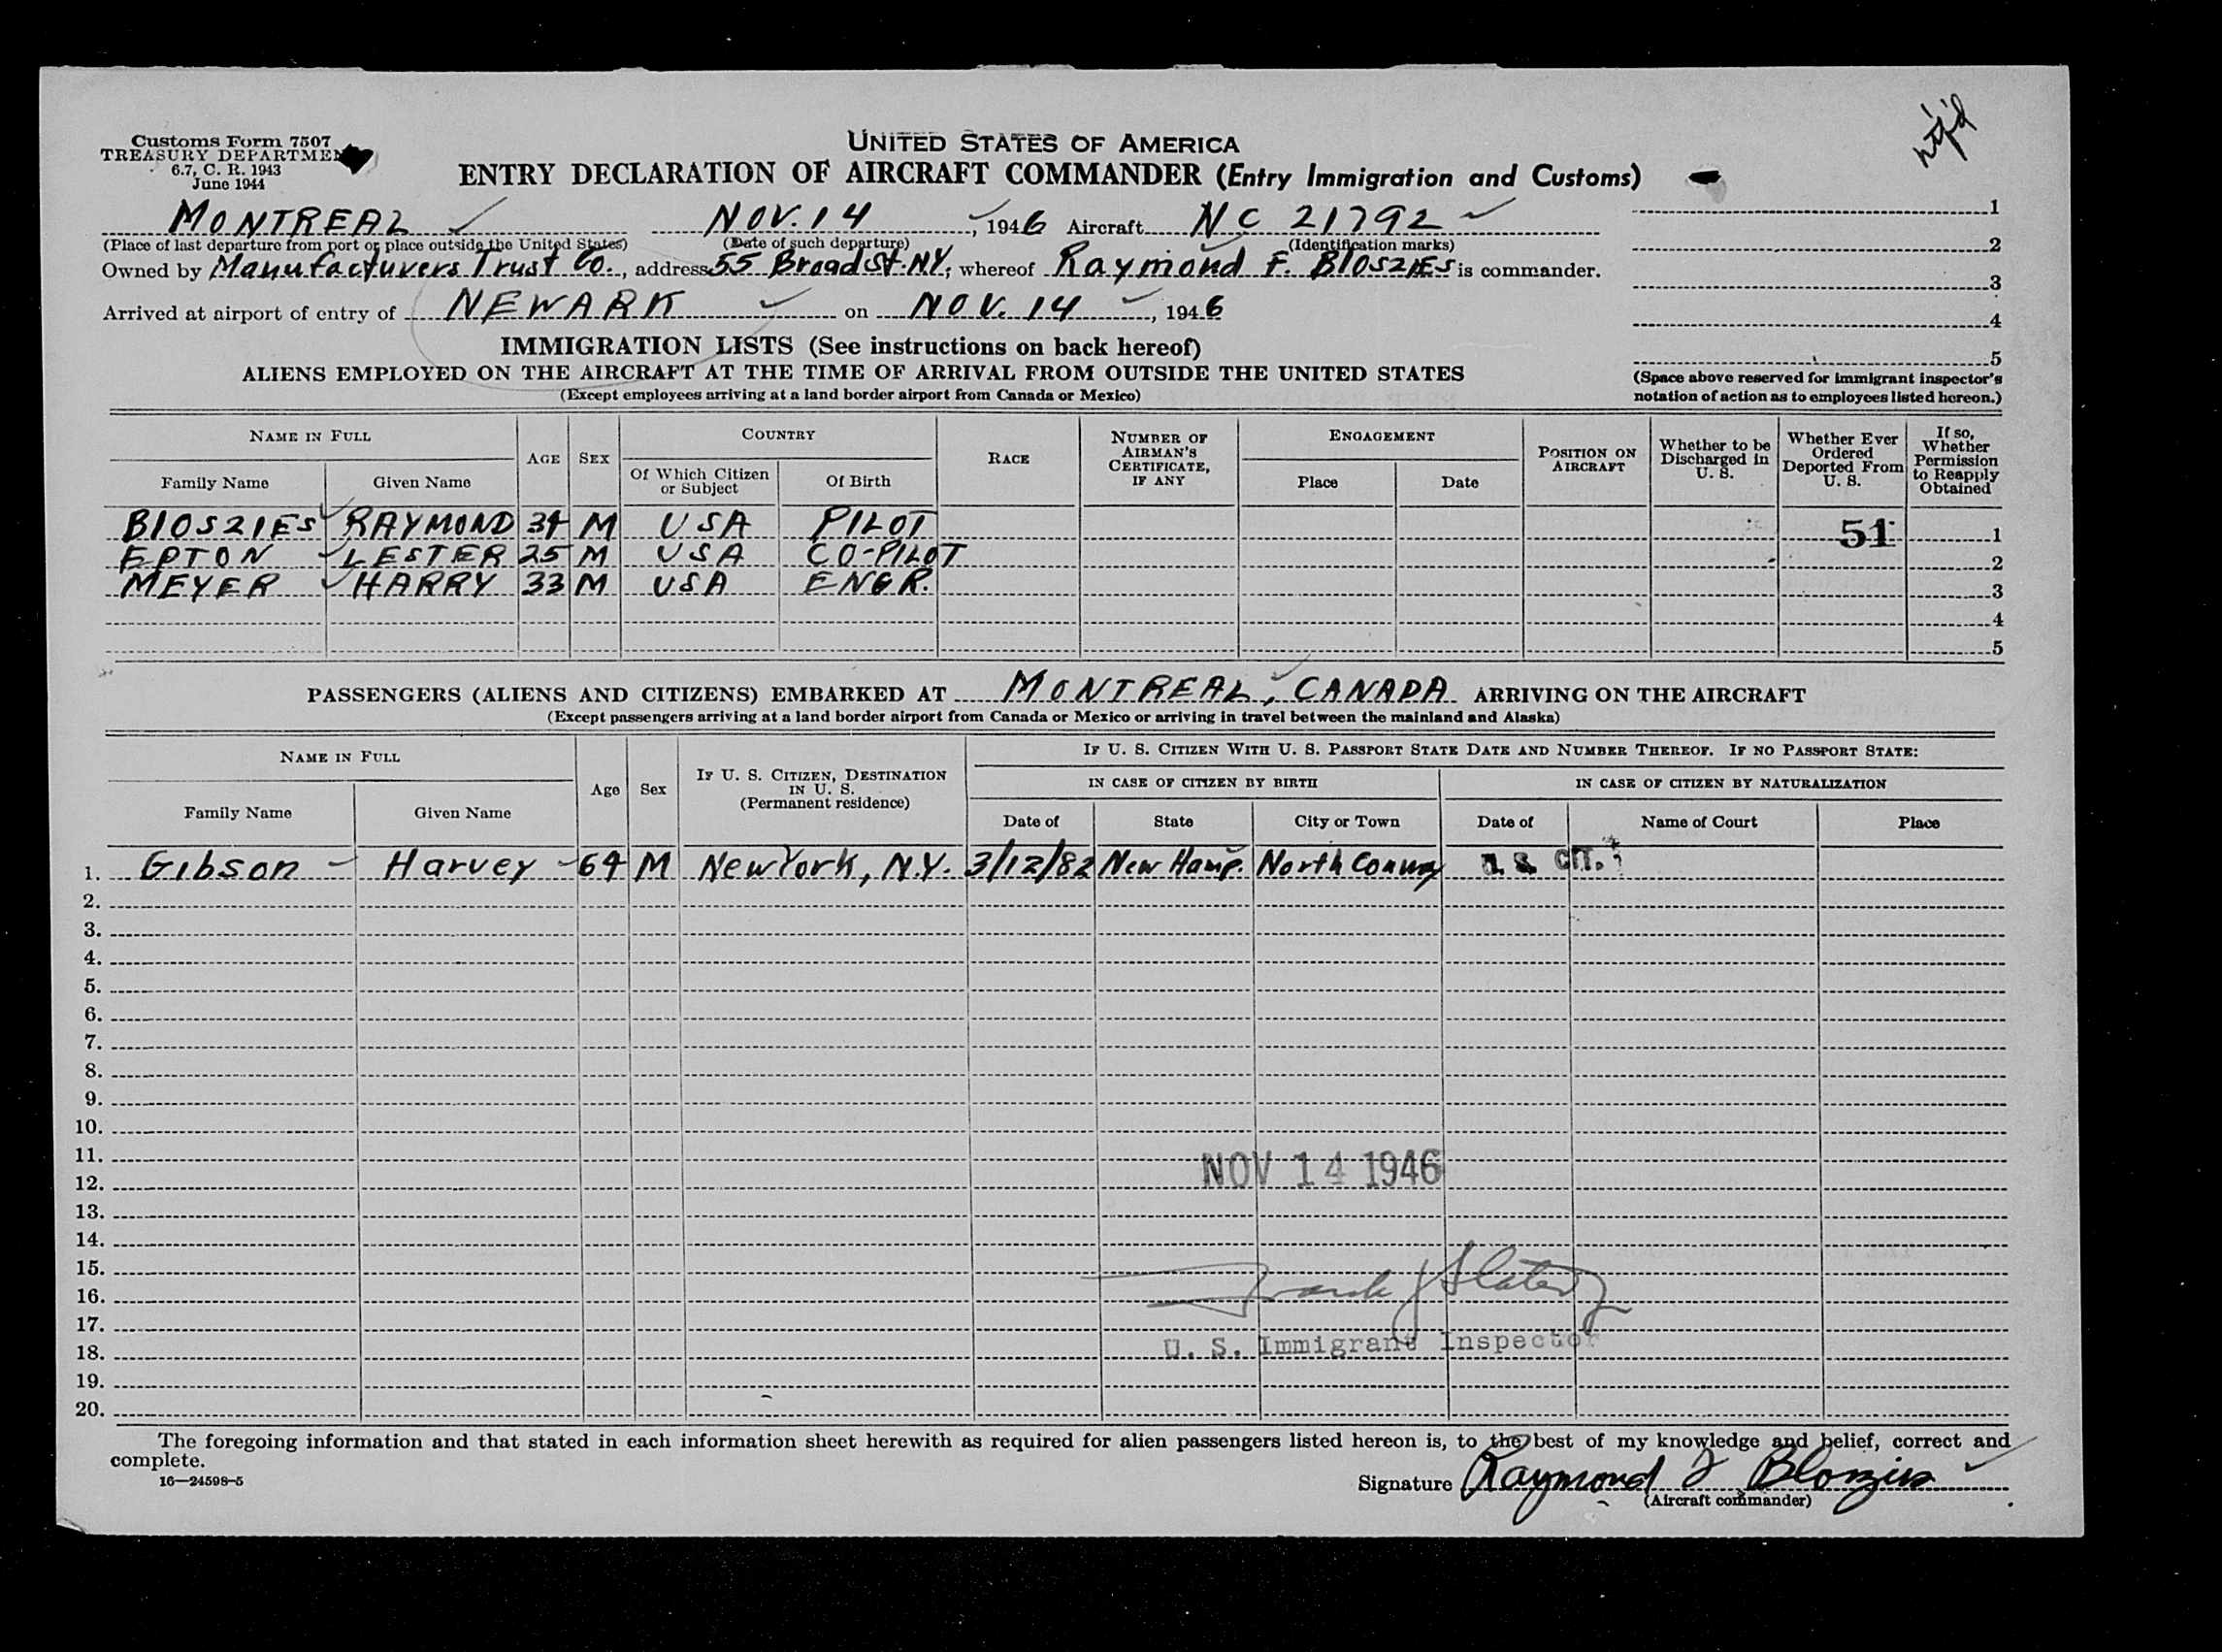 Customs Form 7507
TREASURY DEPARTMENT
6.7, C. R. 1943
June 1944
UNITED STATES OF AMERICA
ENTRY DECLARATION OF AIRCRAFT COMMANDER (Entry Immigration and Customs)
MONTREAL NOV. 14, 1946 Aircraft NC 21792
(Place of last departure from port or place outside the United States) (Date of such departure) (Identification marks)
Owned by Manufacturers Trust Co., address 55 Broad St. N.Y., whereof Raymond F. BlOSZIES is commander.
Arrived at airport of entry of NEWARK on NOV. 14, 1946
1
2
3
4
5
(Space above reserved for immigrant inspector's
notation of action as to employees listed hereon.)
IMMIGRATION LISTS (See instructions on back hereof)
ALIENS EMPLOYED ON THE AIRCRAFT AT THE TIME OF ARRIVAL FROM OUTSIDE THE UNITED STATES
(Except employees arriving at a land border airport from Canada or Mexico)
NAME IN FULL AGE SEX COUNTRY RACE NUMBER OF AIRMAN'S CERTIFICATE, IF ANY ENGAGEMENT POSITION ON AIRCRAFT Whether to be Discharged in U. S. Whether Ever Ordered Deported From U. S. If so, Whether Permission to Reapply Obtained
Family Name Given Name Of Which Citizen or Subject Of Birth Place Date
BlOSZIES RAYMOND 34 M USA PILOT 51 1
EPTON LESTER 25 M USA CO-PILOT 2
MEYER HARRY 33 M USA ENGR. 3
4
5
PASSENGERS (ALIENS AND CITIZENS) EMBARKED AT MONTREAL, CANADA ARRIVING ON THE AIRCRAFT
(Except passengers arriving at a land border airport from Canada or Mexico or arriving in travel between the mainland and Alaska)
NAME IN FULL Age Sex IF U. S. CITIZEN, DESTINATION IN U. S. (Permanent residence) IF U. S. CITIZEN WITH U. S. PASSPORT STATE DATE AND NUMBER THEREOF. IF NO PASSPORT STATE:
IN CASE OF CITIZEN BY BIRTH IN CASE OF CITIZEN BY NATURALIZATION
Family Name Given Name Date of State City or Town Date of Name of Court Place
1. Gibson Harvey 64 M New York, N.Y. 3/12/82 New Hamp. North Conway U. S. CIT.
2.
3.
4.
5.
6.
7.
8.
9.
10.
11.
NOV 14 1946
12.
13.
14.
15.
Frank J Slater
16.
17.
U. S. Immigrant Inspector
18.
19.
20.
The foregoing information and that stated in each information sheet herewith as required for alien passengers listed hereon is, to the best of my knowledge and belief, correct and
complete.
16—24598-5
Signature Raymond F Bloszies
(Aircraft commander)